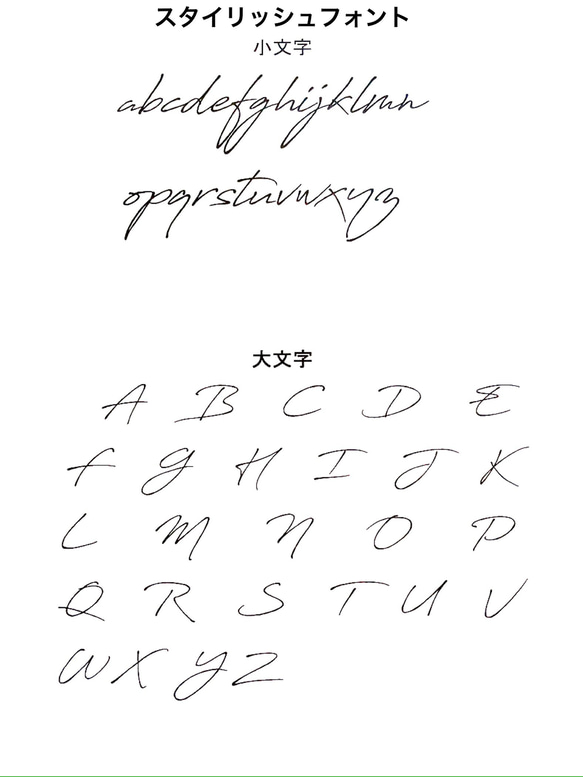 スタイリッシュフォント
小文字
abcdefghijklmn
opqrstuvwxyz
大文字
A B C D E
F G H I J K
L M N O P
Q R S T U V
W X Y Z